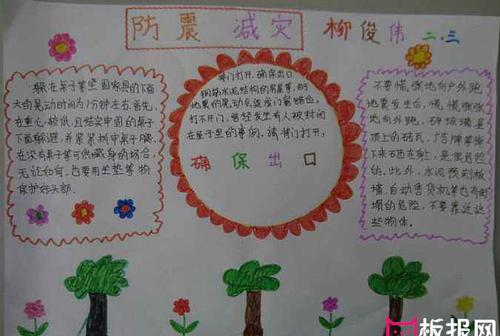 防震 减灾 柳俊伟 二.三
躲在桌子等坚固家具的下面
大的晃动时间约1分钟左右,首先,
在重心较低,且结实牢固的桌子
下面躲避,并紧紧抓牢桌子腿。
在没有桌子等可供藏身的场合,
无论如何,也要用坐垫等物
保护好头部.
将门打开,确保出口
钢筋水泥结构的房屋等,由于
地震的晃动会造成门窗错位,
打不开门,曾经发生有人被封闭
在屋子里的事例。请将门打开,
确保出口
不要慌张地向户外跑
地震发生后,慌慌张张
地向外跑,碎玻璃、屋
顶上的砖瓦、广告牌等掉
下来砸在身上,是很危险
的。此外,水泥预制板
墙、自动售货机等也有倒
塌的危险,不要靠近这
些物体.
板报网